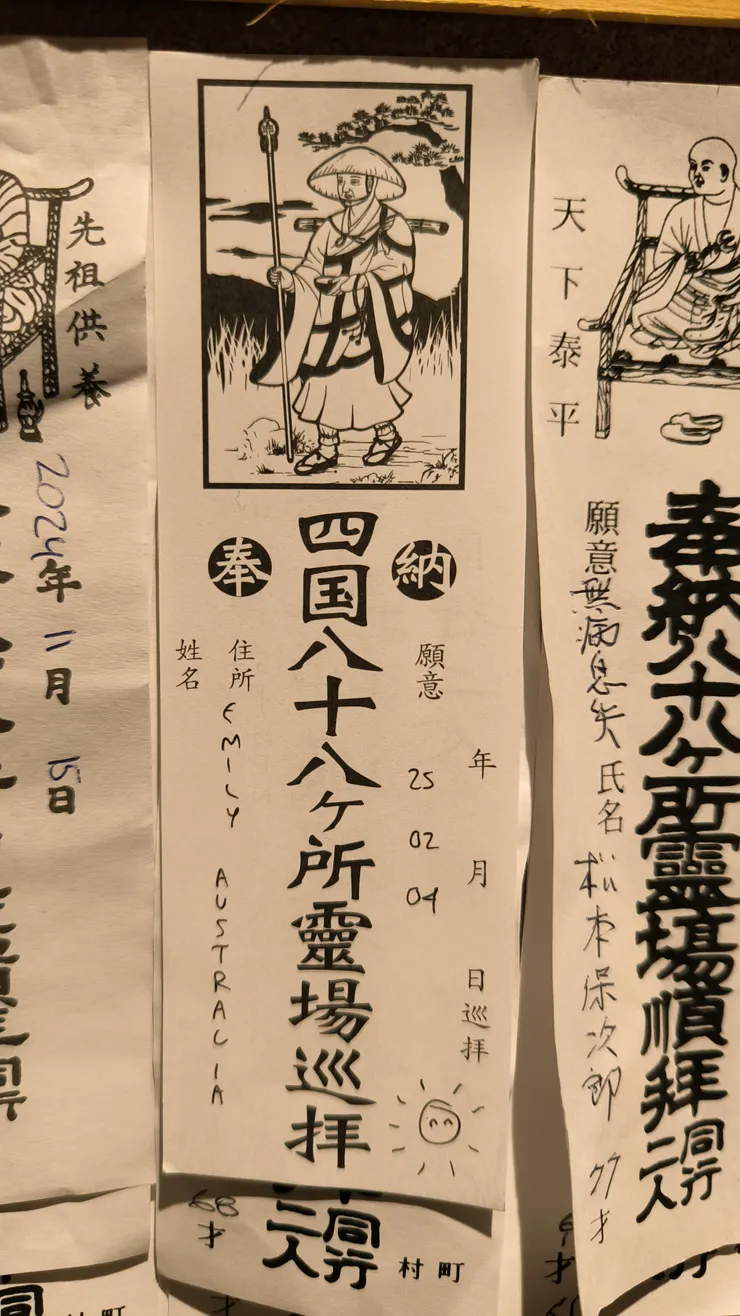 先祖供養
2024年 11月 15日
奉 納
四国八十八ヶ所靈場巡拝
願意
年 月 日巡拝
25 02 04
住所
EMILY AUSTRALIA
姓名
68才
同行二人
村町
天下泰平
奉納八十八ヶ所靈場順拝 同行二人
願意 無病息失
氏名 松本保次郎 77才